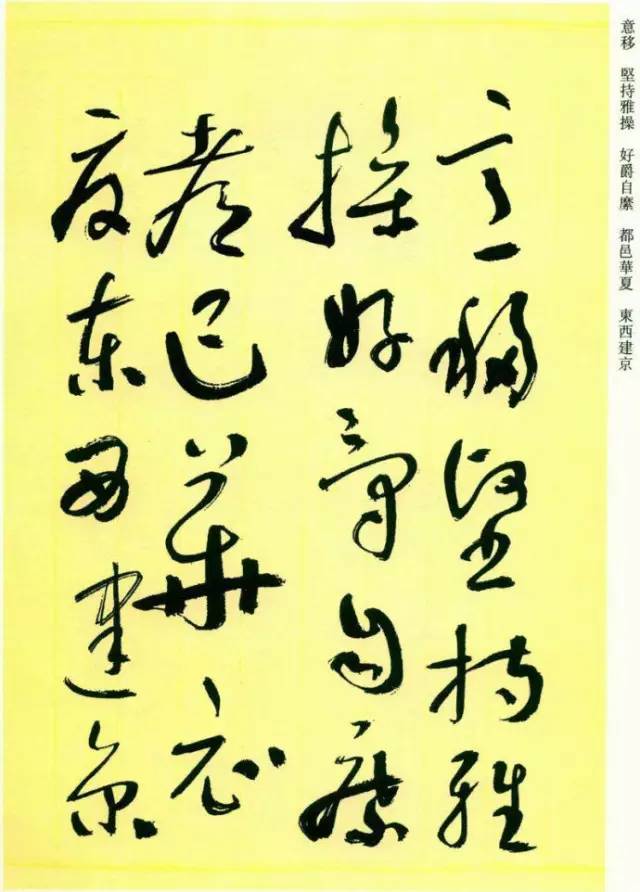 意移 堅持雅操 好爵自縻 都邑華夏 東西建京
意移堅持雅
操好爵自縻
都邑華
夏東西建京